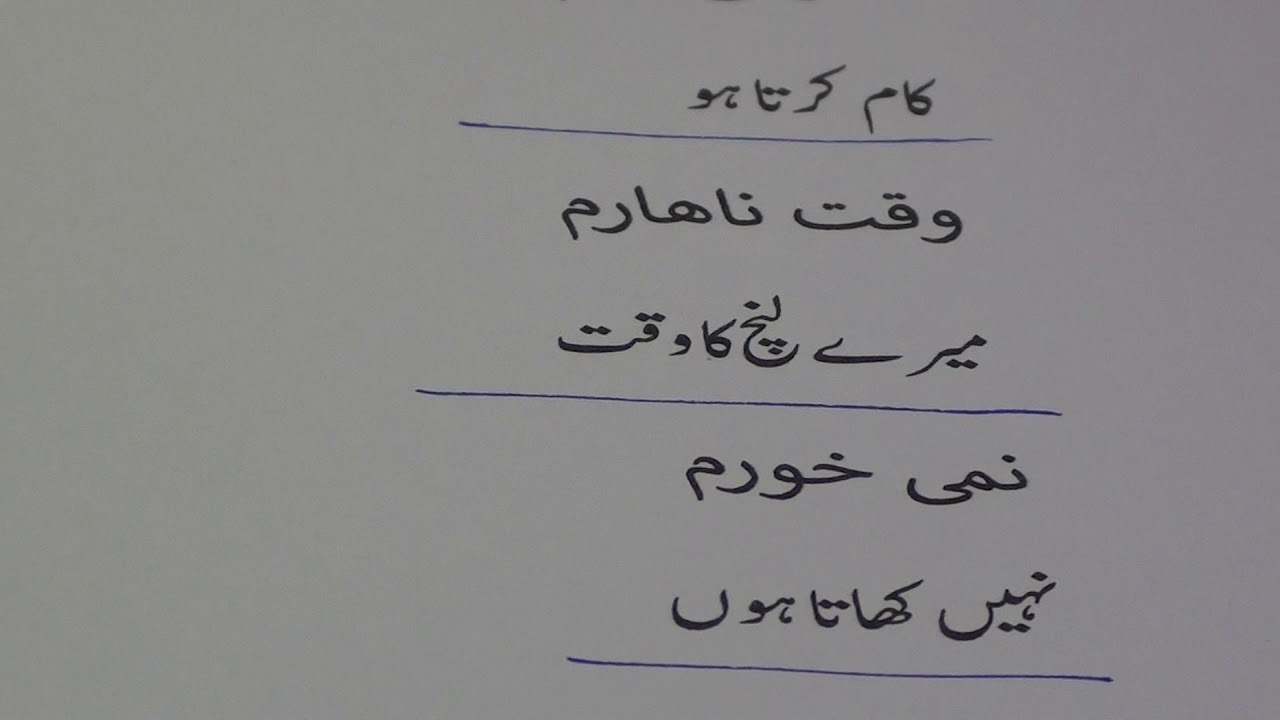 کام کرتا ہو
وقت ناهارم
میرے لنچ کا وقت
نمی خورم
نہیں کھاتا ہوں